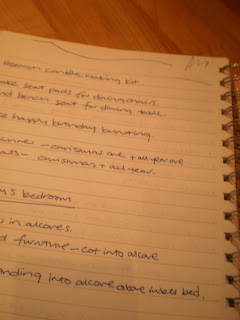 Research candle making kit.
make seat pads for dining chairs.
and bench seat for dining table.
happy birthday bunting.
runner - christmas one + all year one
- christmas + all year.
's bedroom
in alcoves.
furniture - cot into alcove
into alcove above bed.